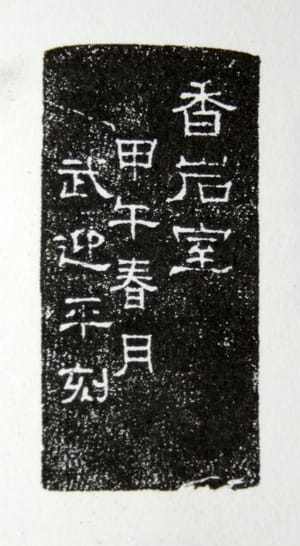 香岩室
甲午春月
武迎平刻